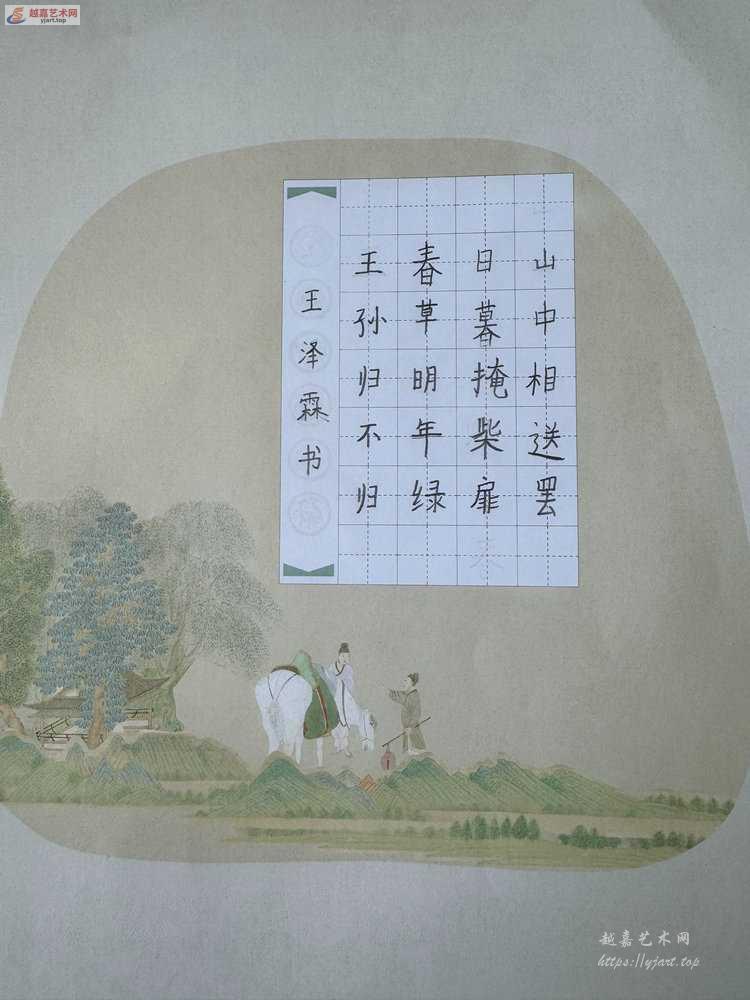 越嘉艺术网
yjart.top
山中相送罢
日暮掩柴扉
春草明年绿
王孙归不归
王泽霖书
越嘉艺术网
https://yjart.top